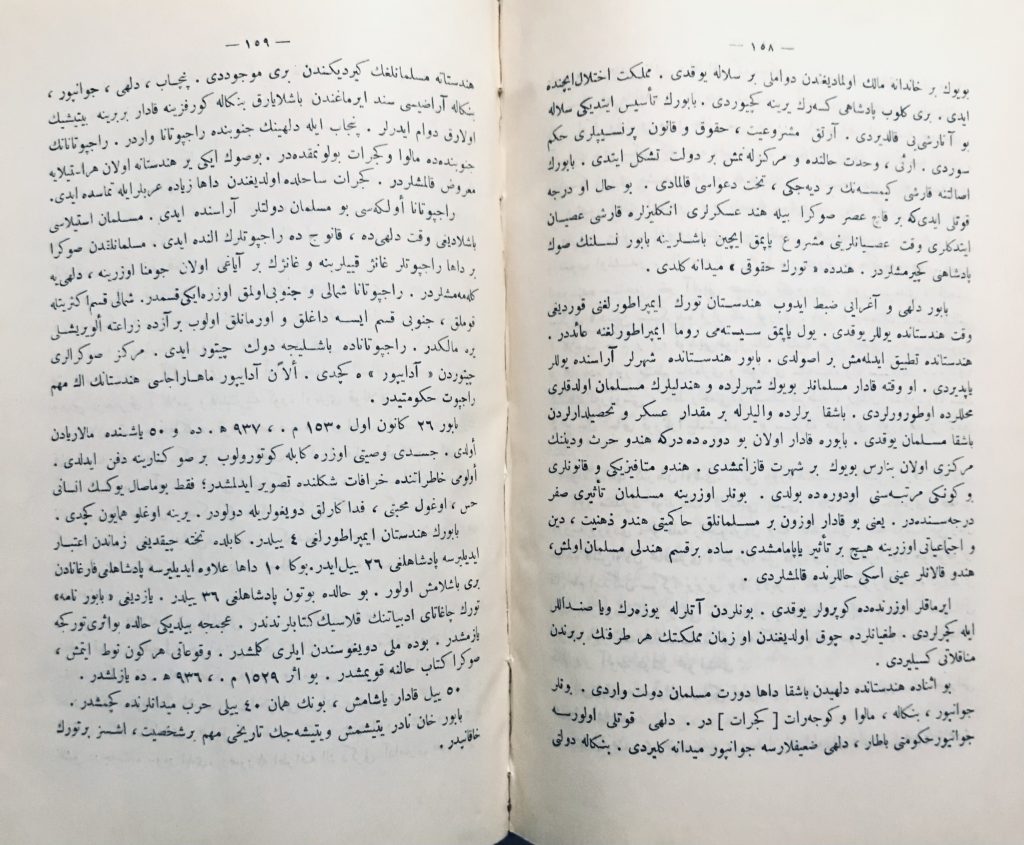 — ١٥٨ —
بويوك بر خاندانه مالك اولماديغندن دواملى بر سلاله يوقدى . مملكت اختلال ايچنده
ايدى . برى كلوب پادشاهى كسه‌رك يرينه كچيوردى . بابورك تأسيس ايتديكى سلاله
بو آنارشى‌يى قالديردى . آرتق مشروعيت ، حقوق و قانون پرنسيپلرى حكم
سوردى . ارثى ، وحدت حالنده و مركزله‌نمش بر دولت تشكل ايتدى . بابورك
اصالتنه قارشى كيمسه‌نك بر ديه‌جكى ، تخت دعواسى قالمادى . بو حال او درجه
قوتلى ايدى‌كه بر قاچ عصر صوكرا بيله هند عسكرلرى انكليزلره قارشى عصيان
ايتدكلرى وقت عصيانلرينى مشروع ياپمق ايچين باشلرينه بابور نسلنك صوك
پادشاهى كچيرمشلردر . هندده « تورك حقوقى » ميدانه كلدى .
بابور دلهى و آغرايى ضبط ايدوب هندستان تورك ايمپراطورلغنى قورديغى
وقت هندستانده يوللر يوقدى . يول ياپمق سيسته‌مى روما ايمپراطورلغنه عائددر .
هندستانده تطبيق ايدلمه‌مش بر اصولدى . بابور هندستانده شهرلر آراسنده يوللر
ياپديردى . او وقته قادار مسلمانلر بويوك شهرلرده و هندليلرك مسلمان اولدقلرى
محللرده اوطورورلردى . باشقا يرلرده واليلرله بر مقدار عسكر و تحصيلدارلردن
باشقا مسلمان يوقدى . بابوره قادار اولان بو دوره‌ده دركه هندو حرث ودينك
مركزى اولان بنارس بويوك بر شهرت قازانمشدى . هندو متافيزيكى و قانونلرى
و كونكى مرتبه‌سنى اودوره‌ده بولدى . بونلر اوزرينه مسلمان تأثيرى صفر
درجه‌سنده‌در . يعنى بو قادار اوزون بر مسلمانلق حاكميتى هندو ذهنيت ، دين
و اجتماعياتى اوزرينه هيچ بر تأثير ياپامامشدى . ساده برقسم هندلى مسلمان اولمش،
هندو قالانلر عينى اسكى حاللرنده قالمشلردى .
ايرماقلر اوزرنده‌ده كوپرولر يوقدى . بونلردن آتلرله يوزه‌رك ويا صنداللر
ايله كچرلردى . طغيانلرده چوق اولديغندن او زمان مملكتك هر طرفنك بربرندن
مناقلاتى كسيليردى .
بو اثناده هندستانده دلهيدن باشقا داها دورت مسلمان دولت واردى . بونلر
جوانپور ، بنكاله ، مالوا و كوجه‌رات [ كجرات ] در . دلهى قوتلى اولورسه
جوانپورحكومتى باطار ، دلهى ضعيفلارسه جوانپور ميدانه كليردى . بنكاله دولتى
— ١٥٩ —
هندستانه مسلمانلغك كيرديكندن برى موجوددى . پنجاب ، دلهى ، جوانپور ،
بنكاله آراضيسى سند ايرماغندن باشلايارق بنكاله كورفزينه قادار بربرينه بيتيشيك
اولارق دوام ايدرلر . پنجاب ايله دلهينك جنوبنده راجپوتانا واردر . راجپوتانانك
جنوبنده‌ده مالوا وكجرات بولونمقده‌در . بوصوك ايكى بر هندستانه اولان هراستيلايه
معروض قالمشلردر . كجرات ساحلده اولديغندن داها زياده عربلرايله تماسده ايدى.
راجپوتانا أولكه‌سى بو مسلمان دولتلر آراسنده ايدى . مسلمان استيلاسى
باشلاديغى وقت دلهى‌ده ، قانوج ده راجپوتلرك النده ايدى . مسلمانلقدن صوكرا
بر داها راجپوتلر غانژ قييلرينه و غانژك بر آياغى اولان جومنا اوزرينه ، دلهى‌يه
كله‌مه‌مشلردر . راجپوتانا شمالى و جنوبى اولمق اوزره‌ايكى‌قسمدر. شمالى قسم اكثريتله
قوملق ، جنوبى قسم ايسه داغلق و اورمانلق اولوب برآزده زراعته ألويريشلى
يره مالكدر . راجپوتاناده باشليجه دولت چيتور ايدى . مركز صوكرالرى
چيتوردن « آدايپور » ه كچدى . ألآن آدايپور ماهاراجاسى هندستانك اك مهم
راجپوت حكومتيدر .
بابور ٢٦ كانون اول ١٥٣٠ م . ، ٩٣٧ ه . ده و ٥٠ ياشنده مالاريادن
أولدى . جسدى وصيتى اوزره كابله كوتورولوب بر صو كنارينه دفن ايدلدى .
أولومى خاطراتنده خرافات شكلنده تصوير ايدلمشدر؛ فقط بوماصال يوكسك انسانى
حس ، اوغول محبتى ، فداكارلق دويغولريله دولودر . يرينه اوغلو همايون كچدى .
بابورك هندستان ايمپراطورلغى ٤ ييلدر. كابلده تخته چيقديغى زماندن اعتبار
ايديليرسه پادشاهلغى ٢٦ ييل‌ايدر.بوكا ١٠ داها علاوه ايديليرسه پادشاهلغى فارغانادن
برى باشلامش اولور . بو حالده بوتون پادشاهلغى ٣٦ ييلدر . يازديغى «بابور نامه»
تورك چاغاتاى ادبياتنك قلاسيك كتابلرندندر . عجمجه بيلديكى حالده بواثرى توركجه
يازمشدر . بوده ملى دويغوسندن ايلرى كلمشدر . وقوعاتى هركون نوط ايتمش ،
صوكرا كتاب حالنه قويمشدر . بو اثر ١٥٢٩ م . ، ٩٣٦ ه . ده يازلمشدر .
٥٠ ييل قادار ياشامش ، بونك همان ٤٠ ييلى حرب ميدانلرنده كچمشدر .
بابور خان نادر يتيشمش ويتيشه‌جك تاريخى مهم برشخصيت ، اشسز برتورك
خاقانيدر .